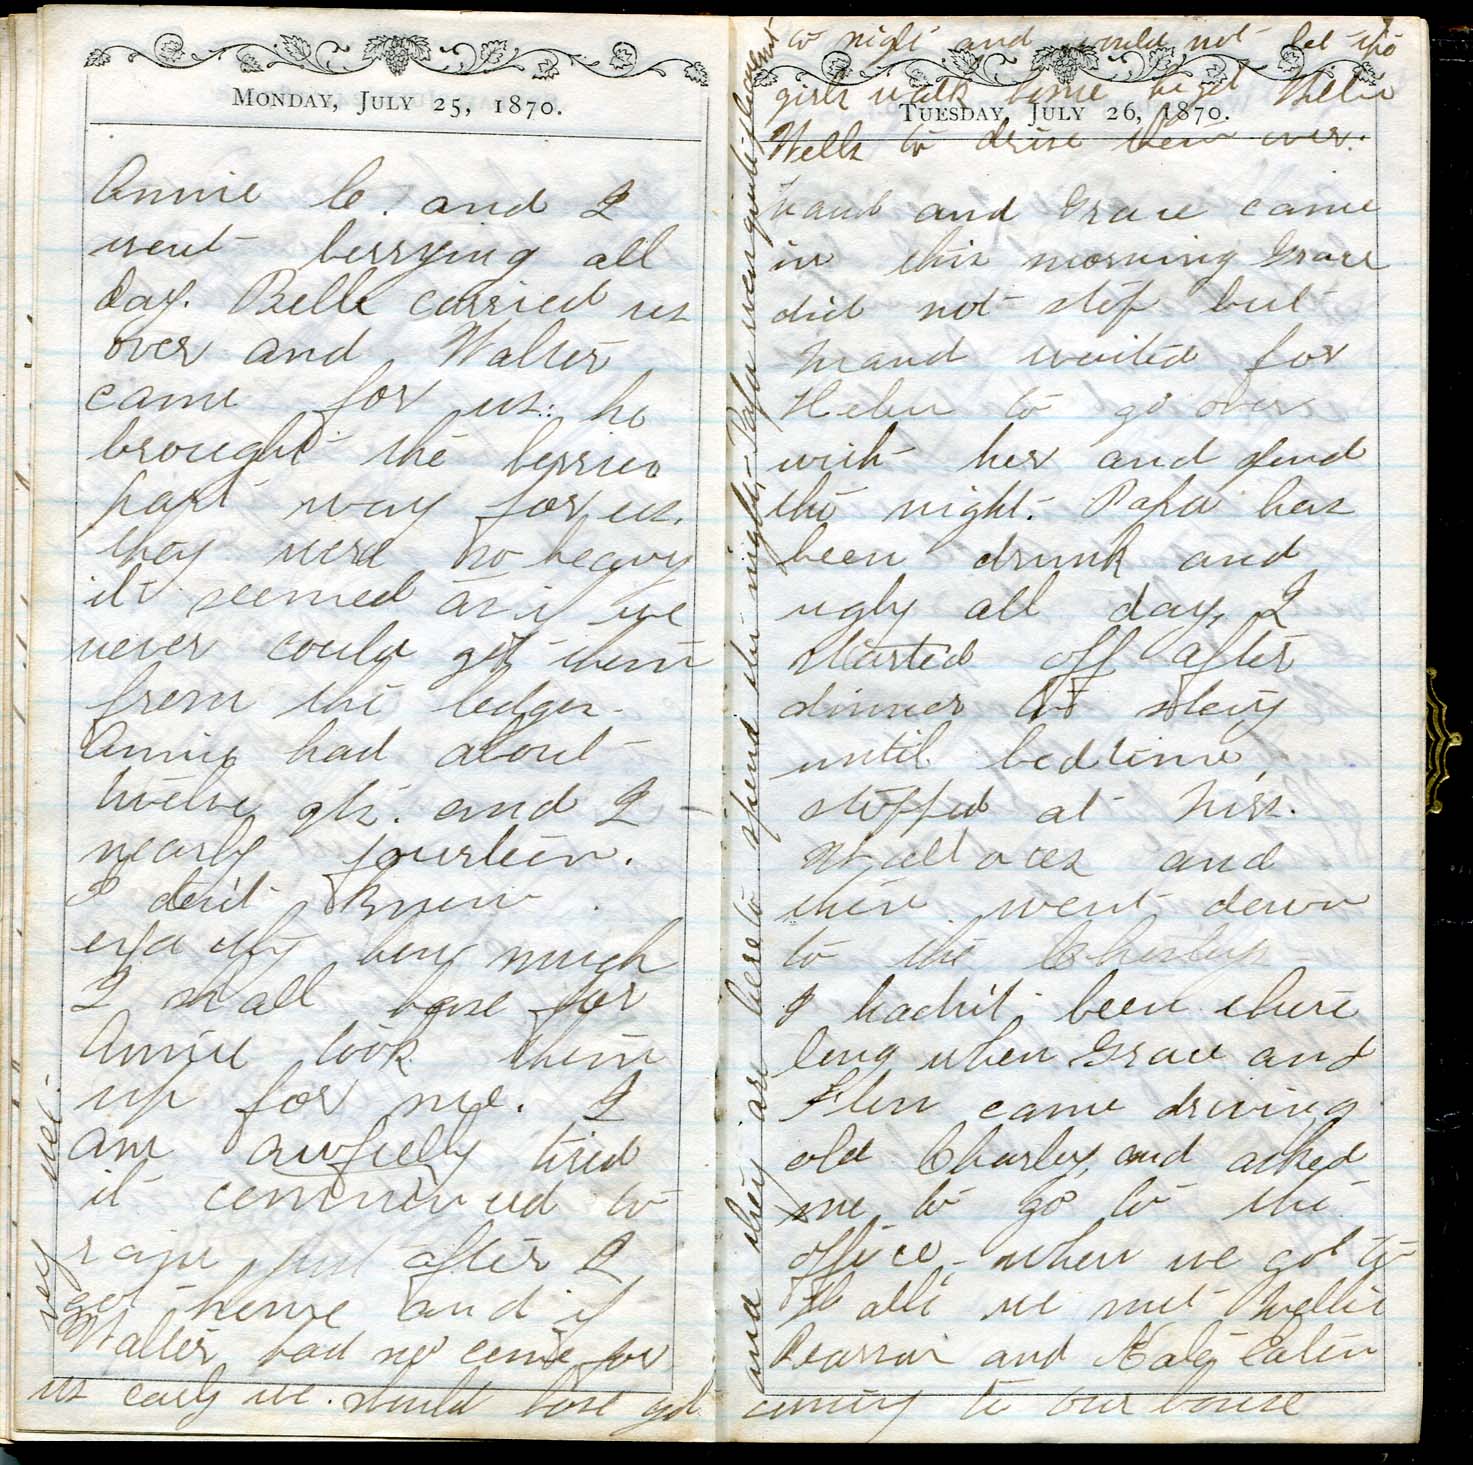 MONDAY, JULY 25, 1870.
Annie C. and I
went berrying all
day. Belle carried us
over and Walter
came for us: he
brought the berries
part way for us.
they were so heavy
it seemed as if we
never could get them
from the ledges.
Annie had about
twelve qts. and I
nearly fourteen.
I don't know
exactly how much
I shall have for
Annie took them
up for me. I
am awfully tired
it commenced to
rain just after I
got home and if
Walter had not come for
us early we should have got
very wet.
TUESDAY, JULY 26, 1870.
Maud and Grace came
in this morning Grace
did not stop but
Maud waited for
Helen to go over
with her and spend
the night. Papa has
been drunk and
ugly all day, I
started off after
dinner to stay
until bedtime,
stopped at Mrs.
Wallaces and
then went down
to the
I hadn't been there
long when Grace and
Flen came driving
old Charley, and asked
me to go to the
office - when we got to
we met Nellie
Pearson and Katy Eaton
coming to our house
and they are here to spend the night, - Papa was quite pleasant
to night and would not let the
girls walk home he got Nellie
Wells to drive them over.